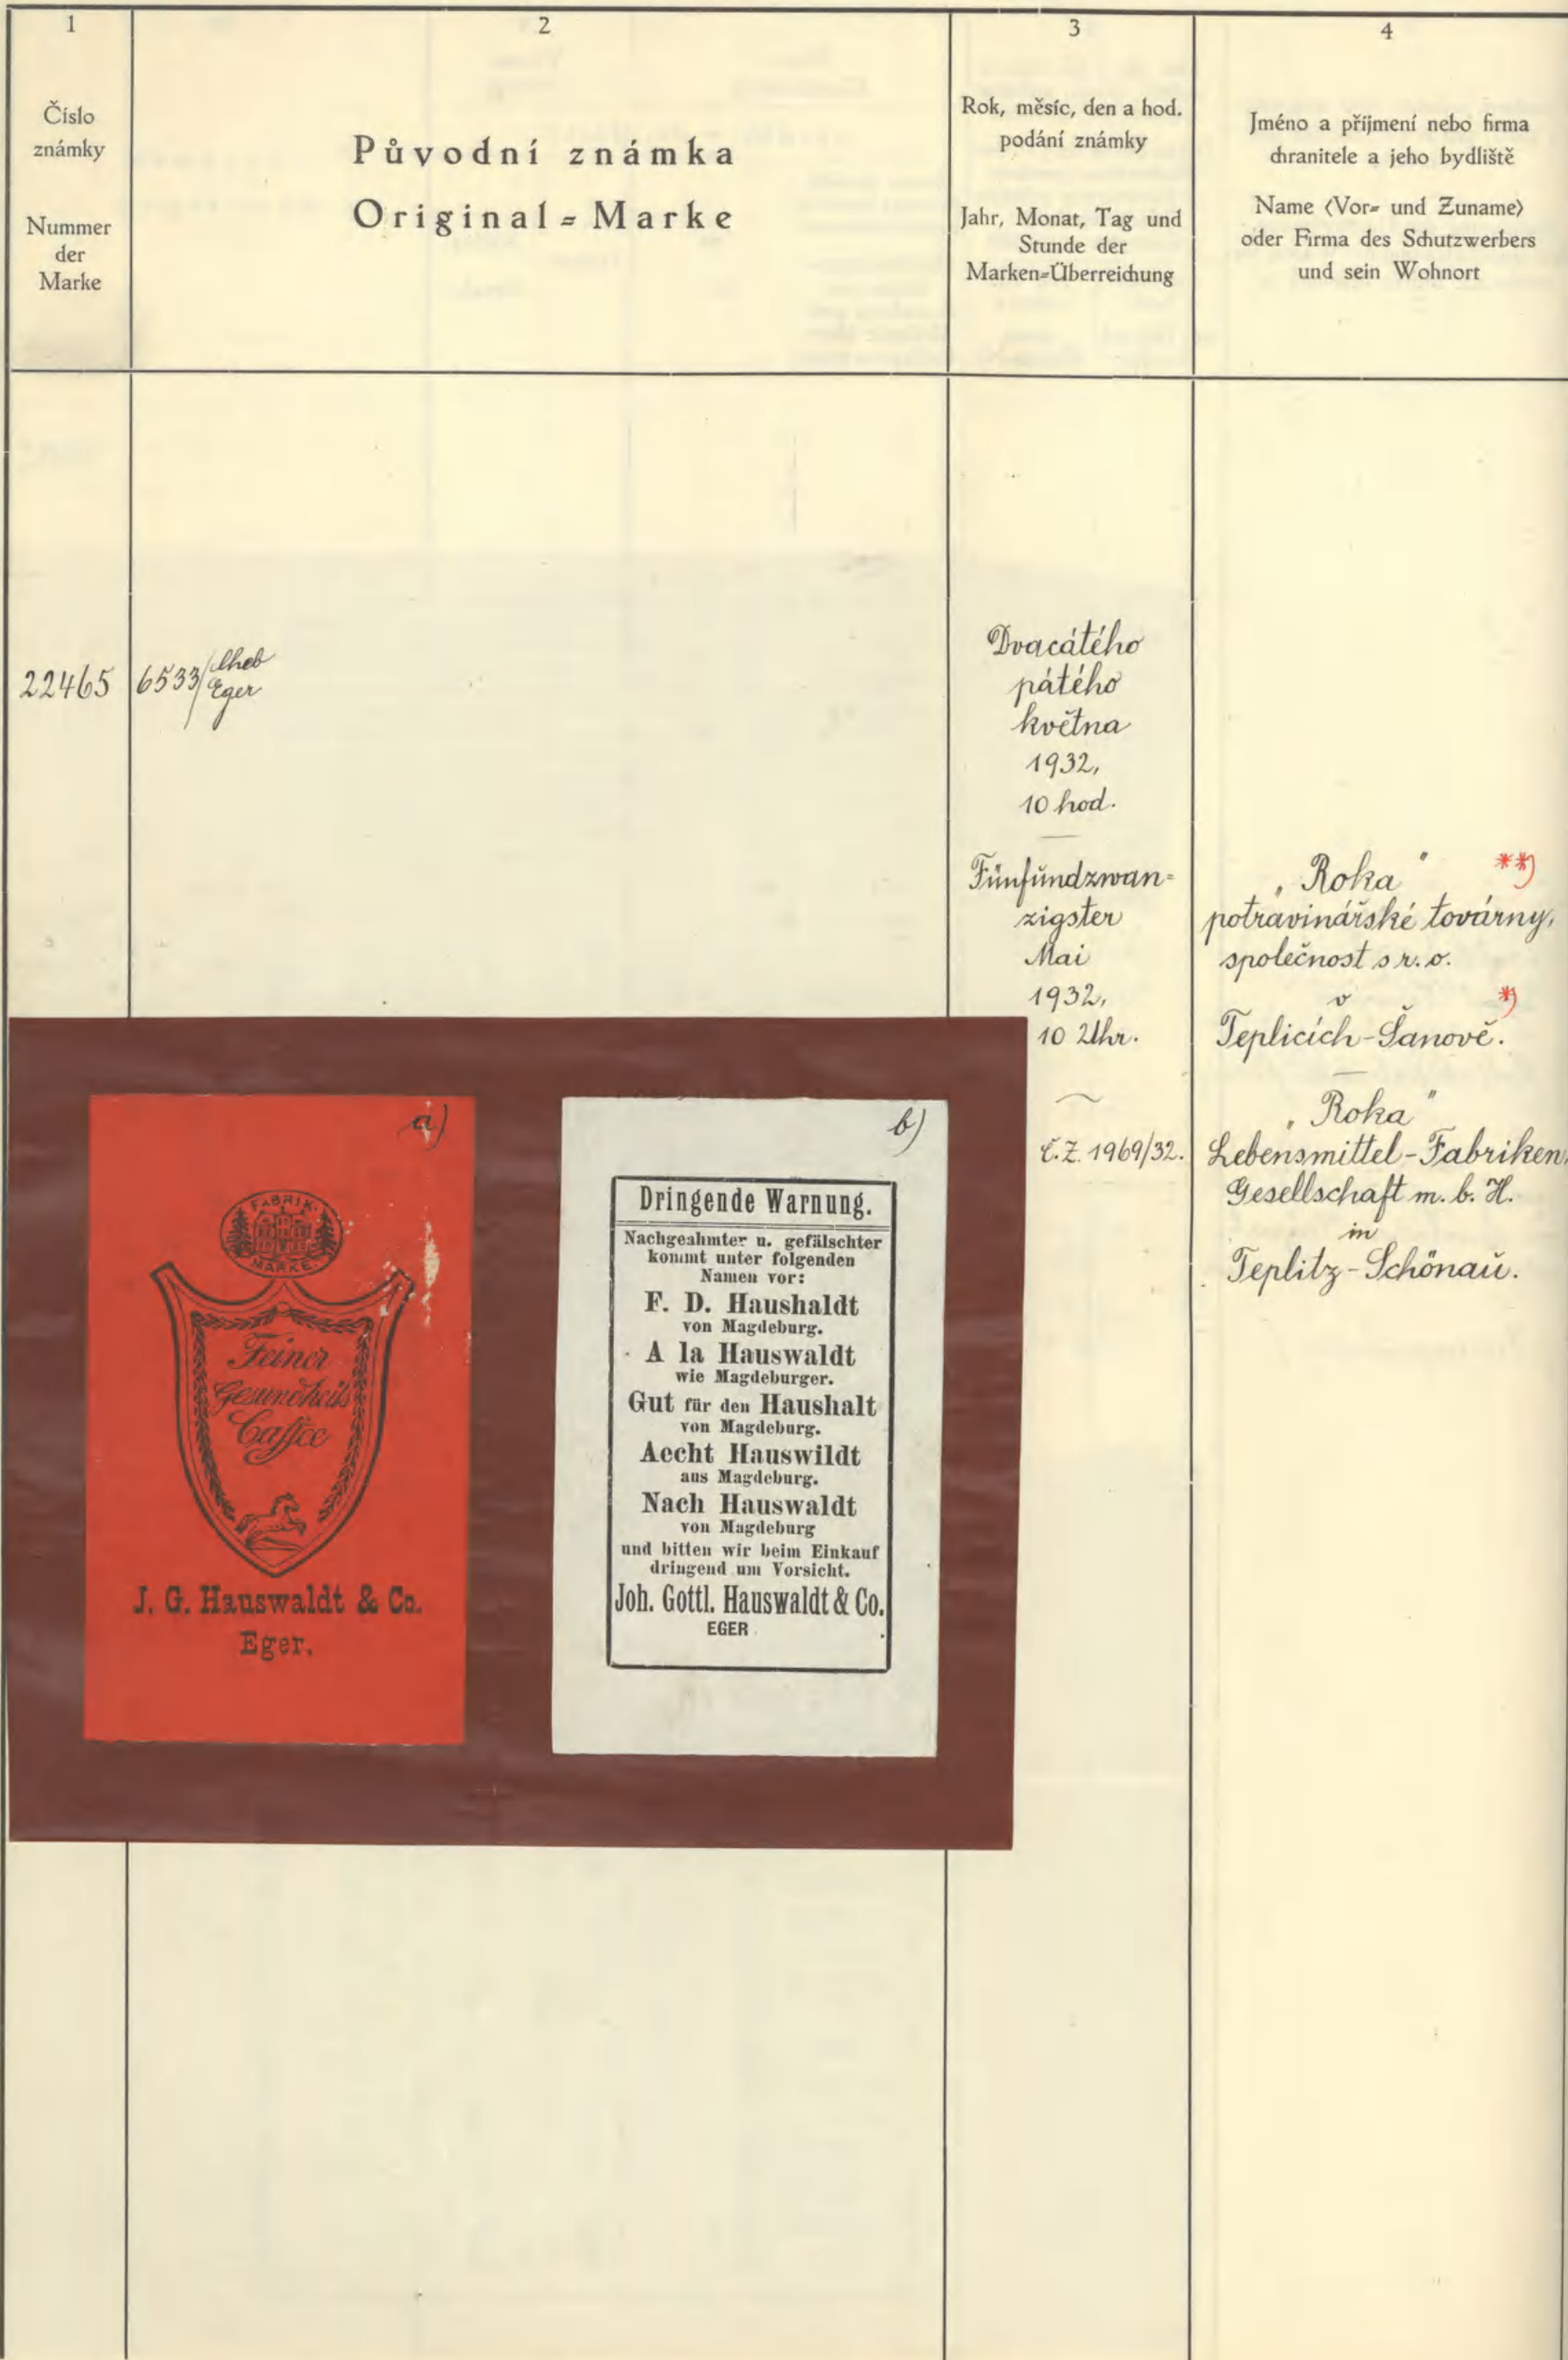 1
Číslo
známky
Nummer
der
Marke
2
Původní známka
Original=Marke
3
Rok, měsíc, den a hod.
podání známky
Jahr, Monat, Tag und
Stunde der
Marken=Überreichung
4
Jméno a příjmení nebo firma
chranitele a jeho bydliště
Name (Vor= und Zuname)
oder Firma des Schutzwerbers
und sein Wohnort
22465
6533/Cheb
Eger
Dvacátého
pátého
května
1932,
10 hod.
Fünfundzwan=
zigster
Mai
1932,
10 Uhr.
č.Z. 1969/32.
„Roka" **)
potravinářské továrny,
společnost s r. o.
v *)
Teplicích-Šanově.
„Roka"
Lebensmittel-Fabriken,
Gesellschaft m. b. H.
in
Teplitz-Schönau.
a)
FABRIK
MARKE.
Feiner
Gesundheits
Caffee
J. G. Hauswaldt & Co.
Eger.
b)
Dringende Warnung.
Nachgeahmter u. gefälschter
kommt unter folgenden
Namen vor:
F. D. Haushaldt
von Magdeburg.
A la Hauswaldt
wie Magdeburger.
Gut für den Haushalt
von Magdeburg.
Aecht Hauswildt
aus Magdeburg.
Nach Hauswaldt
von Magdeburg
und bitten wir beim Einkauf
dringend um Vorsicht.
Joh. Gottl. Hauswaldt & Co.
EGER